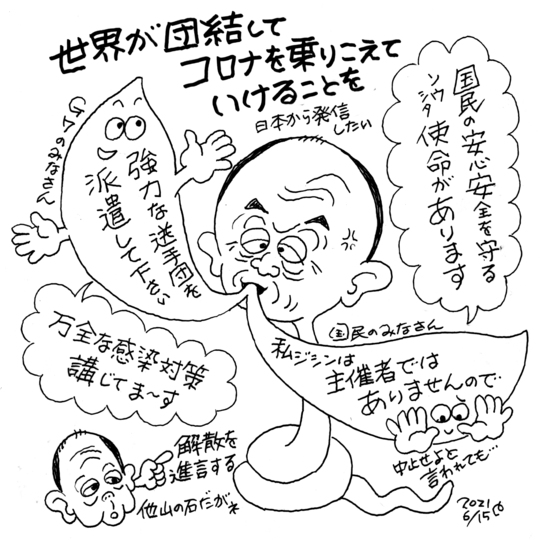 世界が団結して
コロナを乗りこえて
いけることを
日本から発信
したい
G7のみなさん
強力な選手団を
派遣して下さい
国民の安心安全を守る
ソウシタ
使命があります
万全な感染対策
講じてま〜す
国民のみなさん
私ジシンは
主催者では
ありませんので…
中止せよと
言われても…
解散を
進言する
他山の石だがネ
2021
6/15